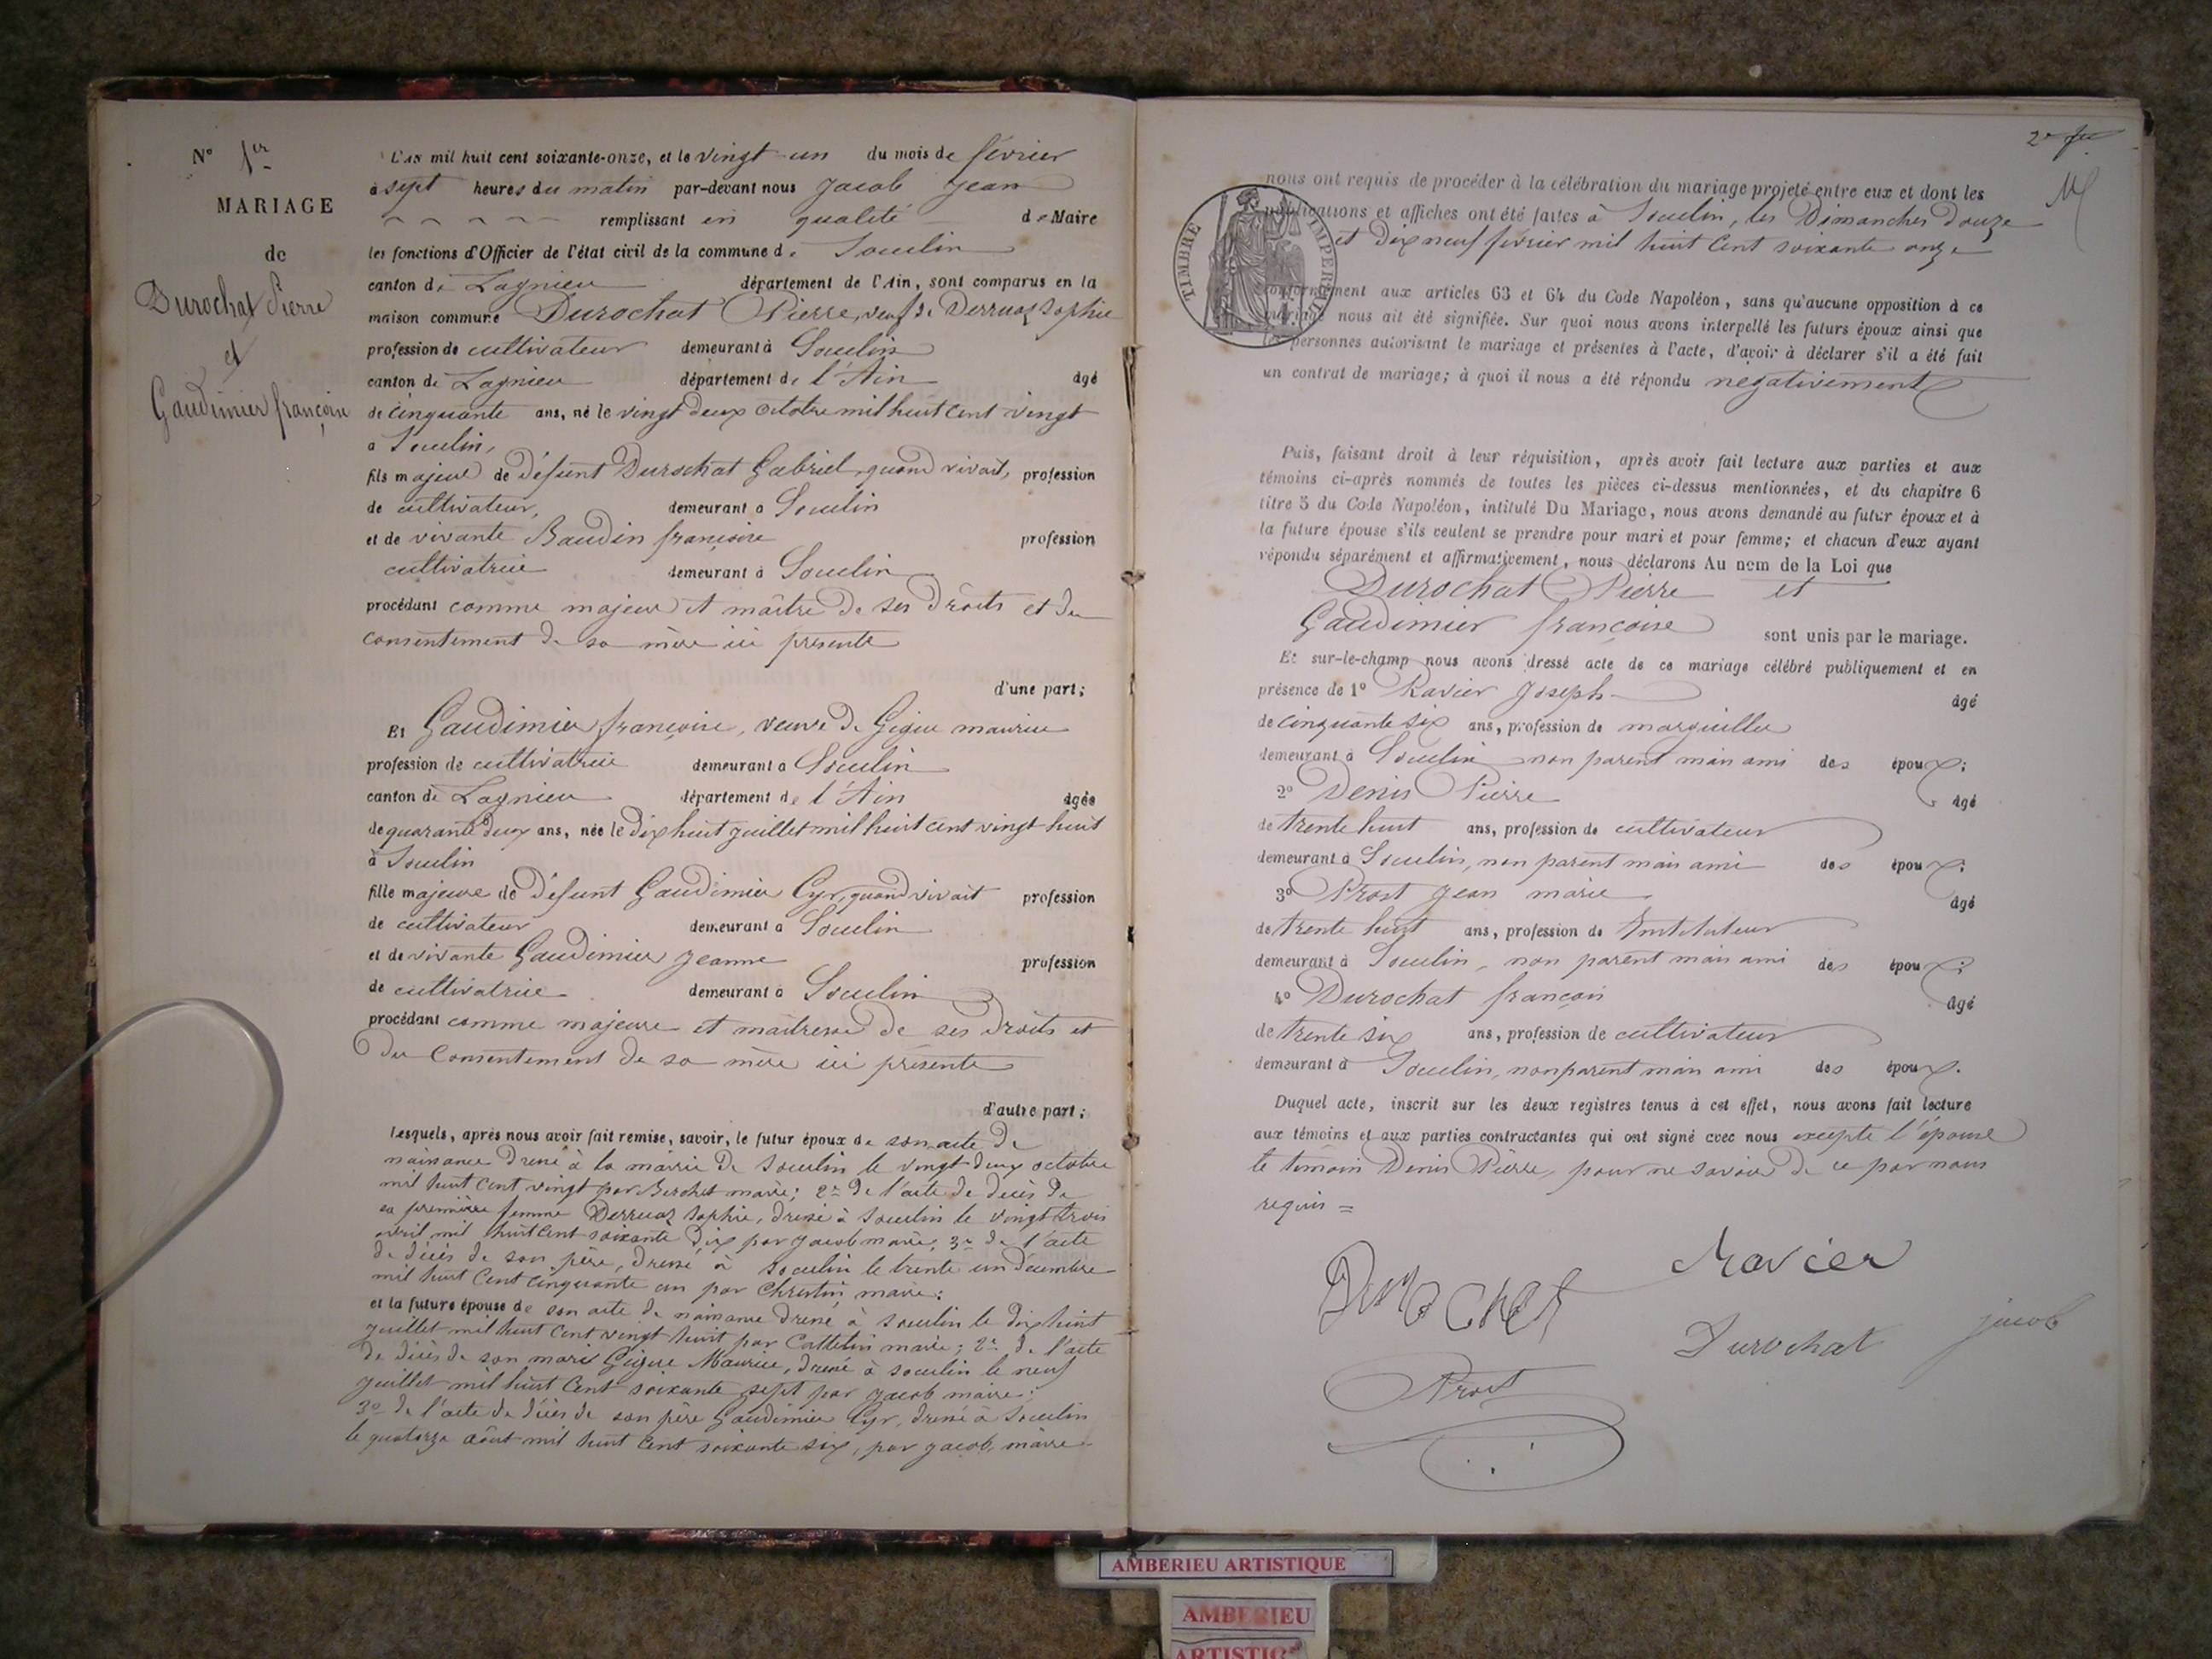 N° 1er
MARIAGE
de
Durochat Pierre
et
Gaudimier françoise
L'an mil huit cent soixante-onze, et le vingt-un du mois de février
à sept heures du matin par-devant nous Jacob Jean
remplissant en qualité de Maire
les fonctions d'Officier de l'état civil de la commune de Souclin
canton de Lagnieu département de l'Ain, sont comparus en la
maison commune Durochat Pierre, veuf de Derruaz Sophie
profession de cultivateur demeurant à Souclin
canton de Lagnieu département de l'Ain âgé
de cinquante ans, né le vingt deux octobre mil huit cent vingt
à Souclin,
fils majeur de défunt Durochat Gabriel, quand vivait, profession
de cultivateur, demeurant à Souclin
et de vivante Baudin françoise profession
cultivatrice demeurant à Souclin
procédant comme majeur et maître de ses droits et du
consentement de sa mère ici présente
d'une part;
Et Gaudimier françoise, veuve de Gigue maurice
profession de cultivatrice demeurant à Souclin
canton de Lagnieu département de l'Ain âgée
de quarante deux ans, née le dix huit juillet mil huit cent vingt huit
à Souclin
fille majeure de défunt Gaudimier Cyr, quand vivait profession
de cultivateur demeurant à Souclin
et de vivante Gaudimier Jeanne profession
de cultivatrice demeurant à Souclin
procédant comme majeure et maitresse de ses droits et
du Consentement de sa mère ici présente
d'autre part;
Lesquels, après nous avoir fait remise, savoir, le futur époux de son acte de
naissance dressé à la mairie de Souclin le vingt deux octobre
mil huit cent vingt par Berchet maire; 2° de l'acte de décès de
sa première femme Derruaz Sophie, dressé à Souclin le vingt trois
avril mil huit cent soixante dix par Jacob maire; 3° de l'acte
de décès de son père, dressé à Souclin le trente un décembre
mil huit Cent cinquante un par Christin maire:
et la future épouse de son acte de naissance dressé à Souclin le dix huit
juillet mil huit cent vingt huit par Cattelin maire; 2° de l'acte
de décès de son mari Gigue Maurice, dressé à Souclin le neuf
juillet mil huit Cent soixante sept par Jacob maire;
3° de l'acte de décès de son père Gaudimier Cyr, dressé à Souclin
le quatorze août mil huit Cent soixante six, par Jacob, maire
2e
nous ont requis de procéder à la célébration du mariage projeté entre eux et dont les
publications et affiches ont été faites à Souclin, les Dimanches douze
et dix neuf février mil huit Cent soixante onze
TIMBRE IMPERIAL
conformément aux articles 63 et 64 du Code Napoléon, sans qu'aucune opposition à ce
mariage nous ait été signifiée. Sur quoi nous avons interpellé les futurs époux ainsi que
les personnes autorisant le mariage et présentes à l'acte, d'avoir à déclarer s'il a été fait
un contrat de mariage; à quoi il nous a été répondu négativement
Puis, faisant droit à leur réquisition, après avoir fait lecture aux parties et aux
témoins ci-après nommés de toutes les pièces ci-dessus mentionnées, et du chapitre 6
titre 5 du Code Napoléon, intitulé Du Mariage, nous avons demandé au futur époux et à
la future épouse s'ils veulent se prendre pour mari et pour femme; et chacun d'eux ayant
répondu séparément et affirmativement, nous déclarons Au nom de la Loi que
Durochat Pierre et
Gaudimier françoise sont unis par le mariage.
Et sur-le-champ nous avons dressé acte de ce mariage célébré publiquement et en
présence de 1° Ravier Joseph âgé
de cinquante six ans, profession de marguiller
demeurant à Souclin non parent mais ami des époux;
2° Denis Pierre âgé
de trente huit ans, profession de cultivateur
demeurant à Souclin, non parent mais ami des époux;
3° Prost Jean marie âgé
de trente huit ans, profession de Instituteur
demeurant à Souclin, non parent mais ami des époux;
4° Durochat françois âgé
de trente six ans, profession de cultivateur
demeurant à Souclin, non parent mais ami des époux.
Duquel acte, inscrit sur les deux registres tenus à cet effet, nous avons fait lecture
aux témoins et aux parties contractantes qui ont signé avec nous excepté l'épouse
le témoin Denis Pierre, pour ne savoir de ce par nous
requis =
Durochat
Ravier
Durochat
jacob
Prost
AMBERIEU ARTISTIQUE
AMBERIEU